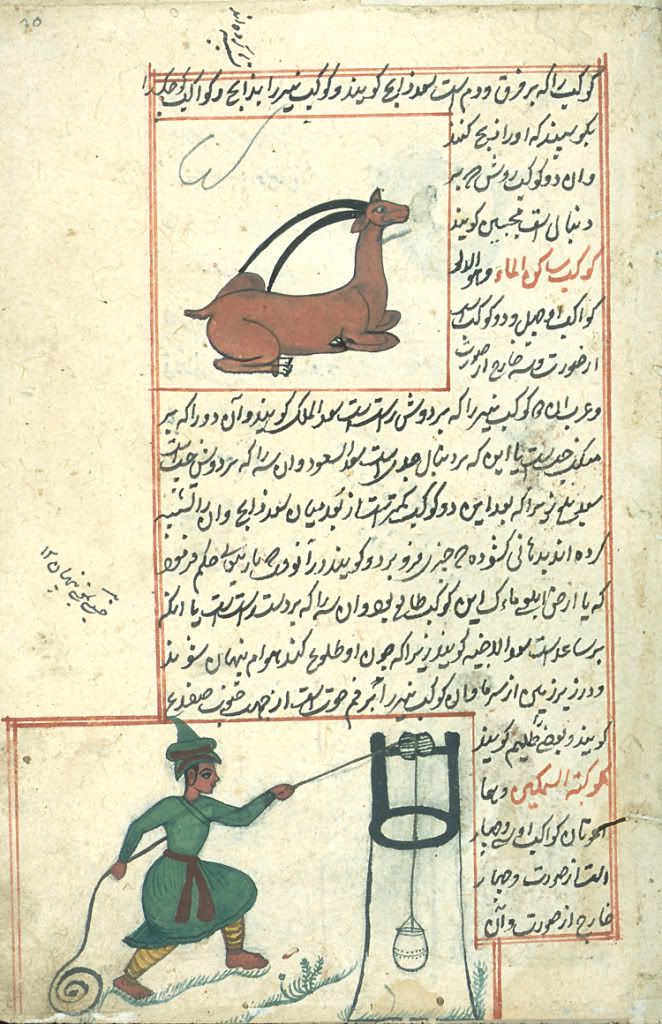 20
کوکب را که بر فرق ودم است سعد ذابح کویند و کوکب نیر را بذابح و کواکب
بکوسپند که اورا ذبح کند
وان دو کوکب روشن که بر
دنبال است محبین کویند
کوکب ساکب الماء وهو الدالو
کواکب او چهل و دو کوکب است
از صورت و سه خارج از صورت
و عرب ان دو کوکب نیر را که بر دوش راست است سعد الملک کویند وآن دو را که بر
منکب چپ است با این که بر دنبال جدی است سعد السعود وان سه را که بر دوش چپ است
سعد بلع نوسراکه بعد این دو کوکب کمتر است از بعد میان سعد ذابح وان را تشبیه
کرده اند بدهانی کشوده که چیزی فرو برد و کویند در آنوقت که باری حکم فرمود
که یا ارض ابلعی ماءک این کوکب طالع بود وان سه را که بر دست راست است با انکه
بر ساعد است سعد الاخبیه کویند زیرا که چون او طلوع کند هوام پنهان شوند
ودر زیر زمین از سرما وان کوکب نیر را که بر فم حوت است از جهت جنوب ضفدع
کویند و بعضی ظلیم کویند
کوکبة السمکتین وهما
الحوتان کواکب او سی و چهار
است از صورت و چهار
خارج از صورت وآن